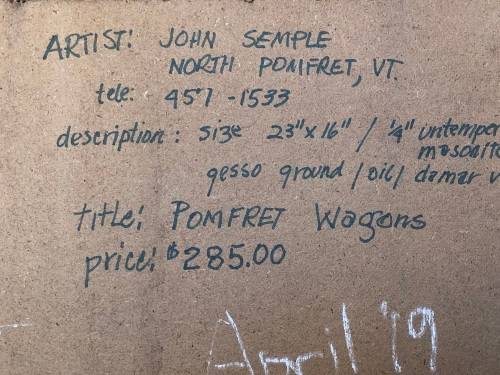 ARTIST: JOHN SEMPLE
NORTH POMFRET, VT.
tele: 457-1533
description: size 23"x16" / 1/4" untemper
masonit
gesso ground / oil / damar v
title: POMFRET Wagons
price: $285.00
April '79